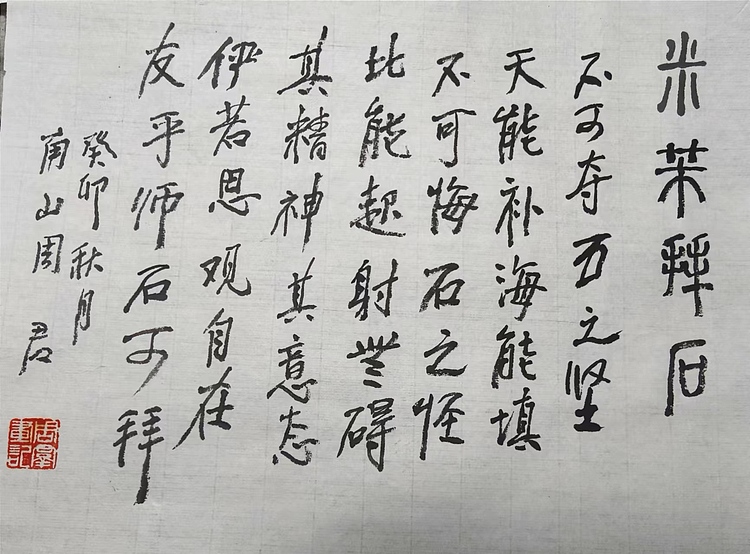 米芾拜石
不可夺石之坚
天能补海能填
不可悔石之怪
比能超射無碍
其精神其意态
伊若思观自在
友乎师石可拜
癸卯秋月
山周君